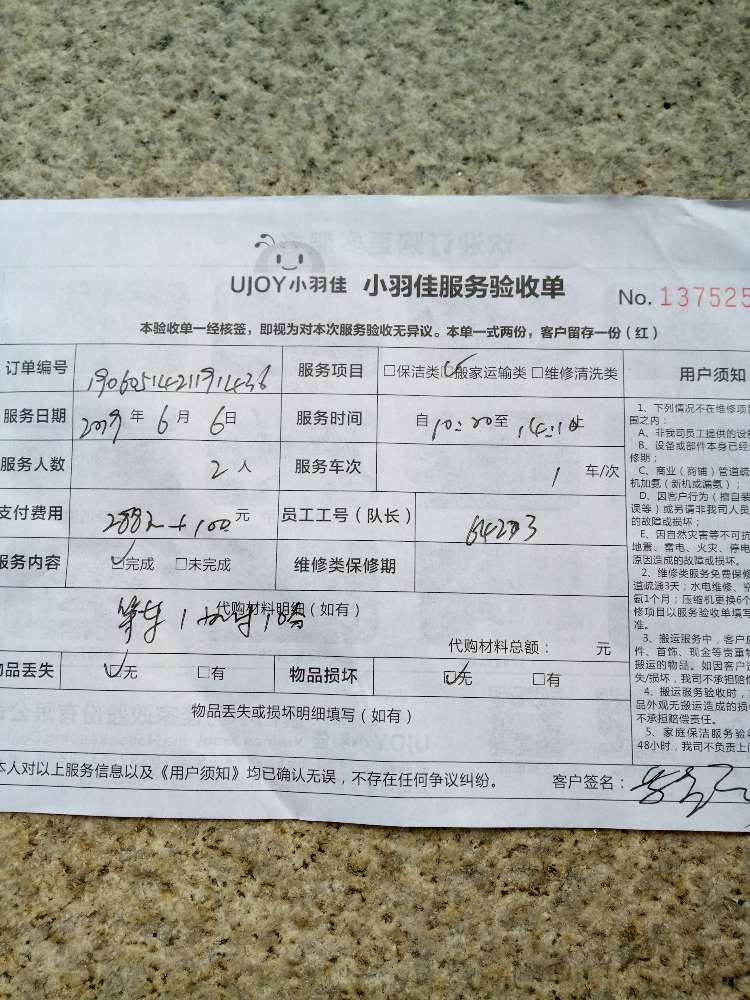 UJOY小羽佳 小羽佳服务验收单 No. 137525
本验收单一经核签，即视为对本次服务验收无异议。本单一式两份，客户留存一份（红）
订单编号 19060514211911436 服务项目 □保洁类 ☑搬家运输类 □维修清洗类
服务日期 2019年6月6日 服务时间 自10:20至14:10
服务人数 2人 服务车次 1车/次
支付费用 2882+100元 员工工号（队长） 64273
服务内容 ☑完成 □未完成 维修类保修期
代购材料明细（如有）
等车1小时10分
代购材料总额： 元
物品丢失 ☑无 □有 物品损坏 ☑无 □有
物品丢失或损坏明细填写（如有）
本人对以上服务信息以及《用户须知》均已确认无误，不存在任何争议纠纷。 客户签名：
用户须知
1、下列情况不在维修项
围之内：
A、非我司员工提供的设备
B、设备或部件本身已经
修期；
C、商业（商铺）管道疏
机加氨（新机或漏氨）；
D、因客户行为（擅自装
误等）或另请非我司人员
的故障或损坏；
E、因自然灾害等不可抗
地震、雷电、火灾、停电
原因造成的故障或损坏。
2、维修类服务免费保修
道疏通3天；水电维修、
氨1个月；压缩机更换6个
修项目以服务验收单填写
准。
3、搬运服务中，客户
件、首饰、现金等贵重
搬运的物品。如因客户
失/损坏，我司不承担赔偿
4、搬运服务验收时，
品外观无搬运造成的损
不承担赔偿责任。
5、家庭保洁服务验
48小时，我司不负责上